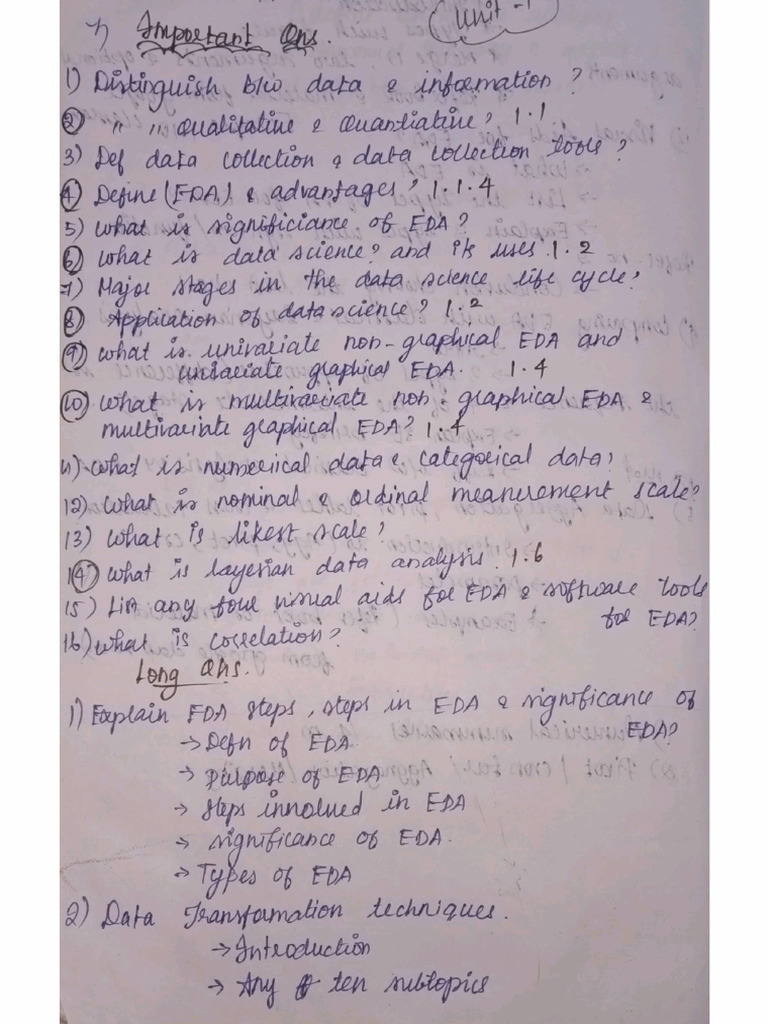 Unit - 1
Important Qns.
1) Distinguish b/w data & information ?
2) " " qualitative & quantiative? 1.1
3) Def data collection & data collection tools?
4) Define (EDA) & advantages? 1.1.4
5) what is significiance of EDA?
6) what is data science? and its uses 1.2
7) Major stages in the data science life cycle?
8) Application of data science? 1.2
9) what is univariate non-graphical EDA and
univariate graphical EDA. 1.4
10) what is multivariate non-graphical EDA &
multivariate graphical EDA? 1.4
11) what is numerical data & categorical data?
12) what is nominal & ordinal measurement scale?
13) what is likest scale?
14) what is layesian data analysis. 1.6
15) List any four visual aids for EDA & software tools
for EDA?
16) what is correlation?
Long Qns.
1) Explain EDA steps, steps in EDA & significance of
EDA?
→ Defn of EDA
→ purpose of EDA
→ steps innolued in EDA
→ significance of EDA.
→ Types of EDA
2) Data Transformation techniques.
→ Introduction
→ Any ten subtopics